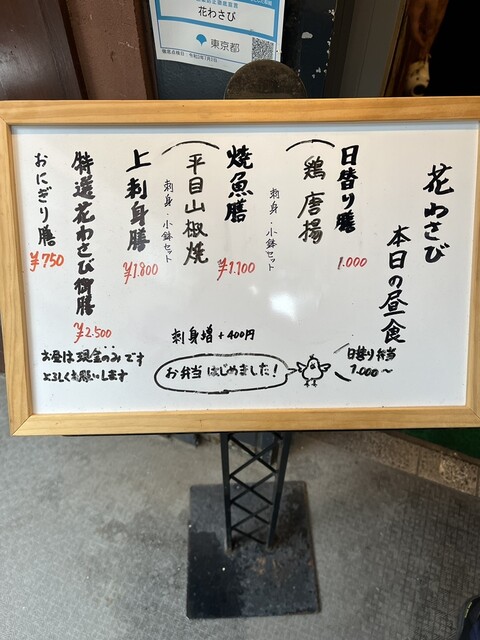 花わさび
東京都
花わさび
本日の昼食
日替り膳
(鶏唐揚)
刺身・小鉢セット
1.000
焼魚膳
(平目山椒焼)
刺身・小鉢セット
¥1.100
上刺身膳
¥1.800
特選花わさび御膳
¥2.500
おにぎり膳
¥750
刺身増+400円
お昼は現金のみです
よろしくお願いします
お弁当はじめました!
日替り弁当
1.000〜